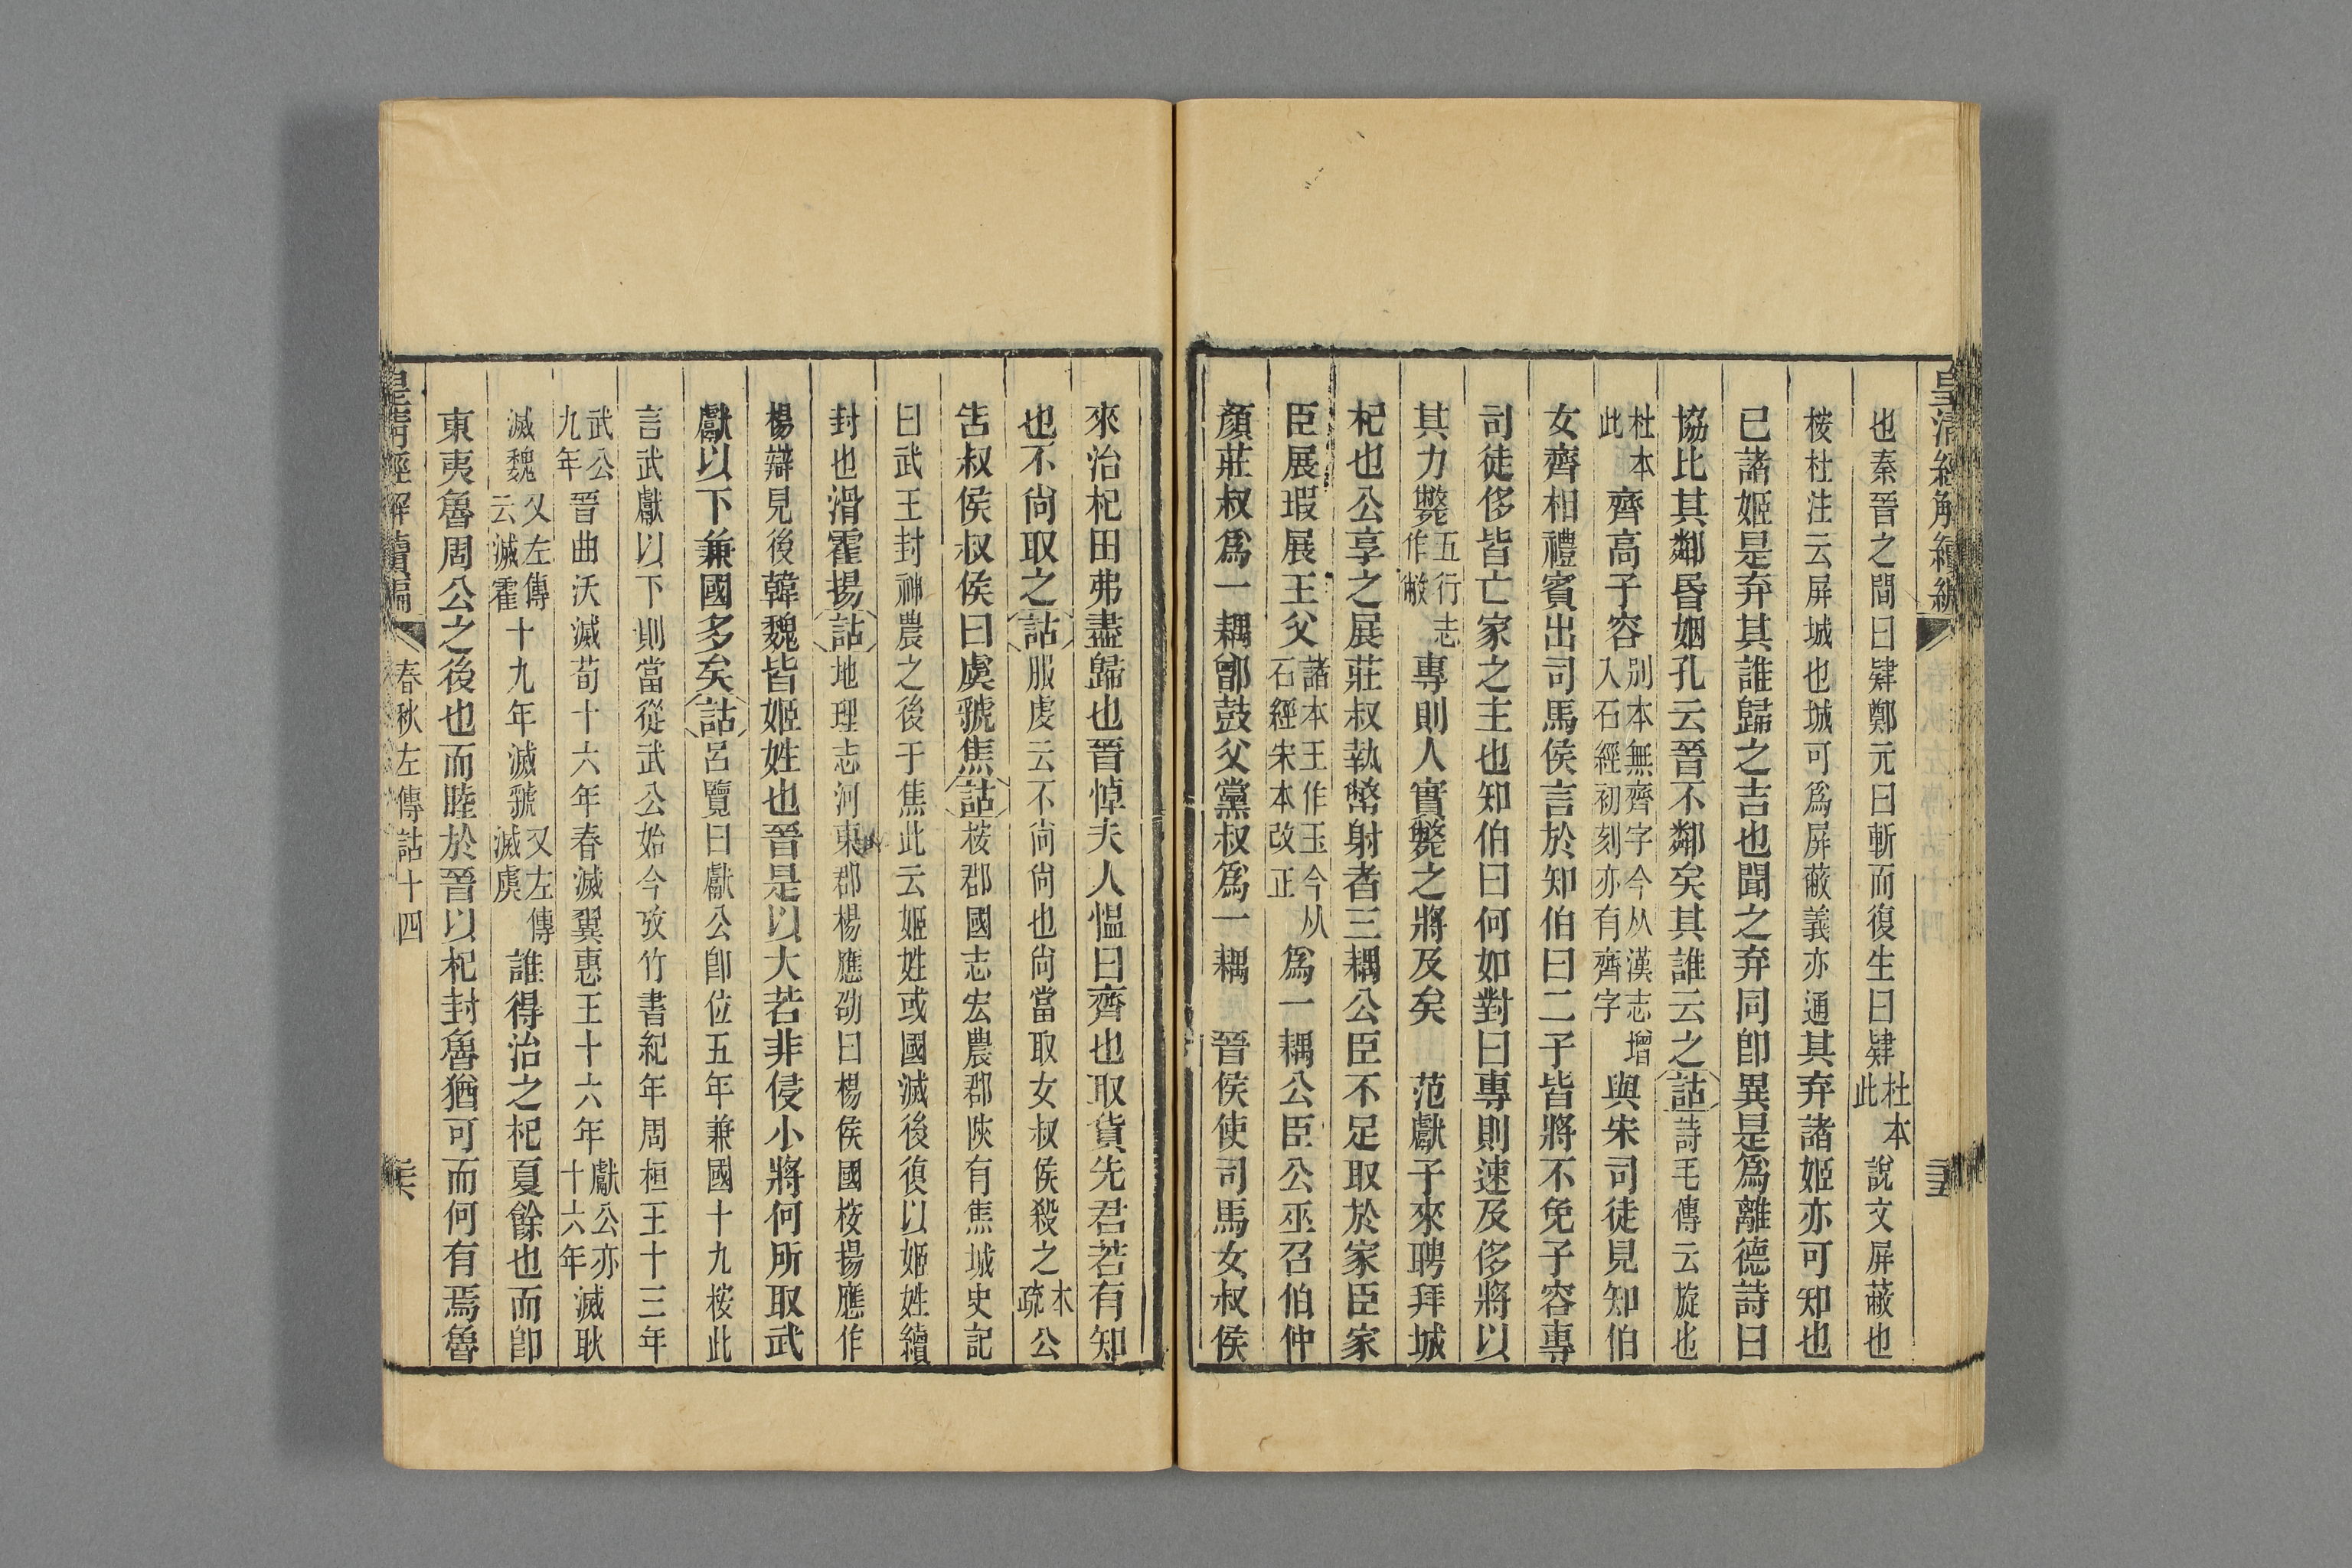 皇清經解續編
也秦晉之間曰肄鄭元曰斬而復生曰肄杜本此說文屏蔽也
桉杜注云屏城也城可爲屏蔽義亦通其弃諸姬亦可知也
已諸姬是弃其誰歸之吉也聞之弃同卽異是爲離德詩曰
協比其鄰昏姻孔云晉不鄰矣其誰云之詁詩毛傳云旋也
杜本此齊高子容別本無齊字今从漢志增入石經初刻亦有齊字與宋司徒見知伯
女齊相禮賓出司馬侯言於知伯曰二子皆將不免子容專
司徒侈皆亡家之主也知伯曰何如對曰專則速及侈將以
其力斃五行志作敝專則人實斃之將及矣　范獻子來聘拜城
杞也公享之展莊叔執幣射者三耦公臣不足取於家臣家
臣展瑕展王父諸本王作玉今从石經宋本改正爲一耦公臣公巫召伯仲
顏莊叔爲一耦鄫鼓父黨叔爲一耦　晉侯使司馬女叔侯
來治杞田弗盡歸也晉悼夫人慍曰齊也取貨先君若有知
也不尙取之詁服虔云不尙尙也尙當取女叔侯殺之本疏公
告叔侯叔侯曰虞虢焦詁桉郡國志宏農郡陝有焦城史記
曰武王封神農之後于焦此云姬姓或國滅後復以姬姓續
封也滑霍揚詁地理志河東郡楊應劭曰楊侯國桉揚應作
楊辯見後韓魏皆姬姓也晉是以大若非侵小將何所取武
獻以下兼國多矣詁呂覽曰獻公卽位五年兼國十九桉此
言武獻以下則當從武公始今攷竹書紀年周桓王十三年
武公九年晉曲沃滅荀十六年春滅翼惠王十六年獻公亦十六年滅耿
滅魏又左傳云滅霍十九年滅虢又左傳滅虞誰得治之杞夏餘也而卽
東夷魯周公之後也而睦於晉以杞封魯猶可而何有焉魯
皇清經解續編　春秋左傳詁十四